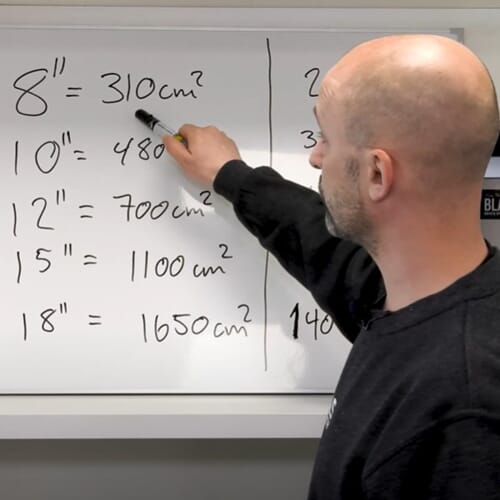 8" = 310cm²
10" = 480
12" = 700cm²
15" = 1100cm²
18" = 1650cm²
140